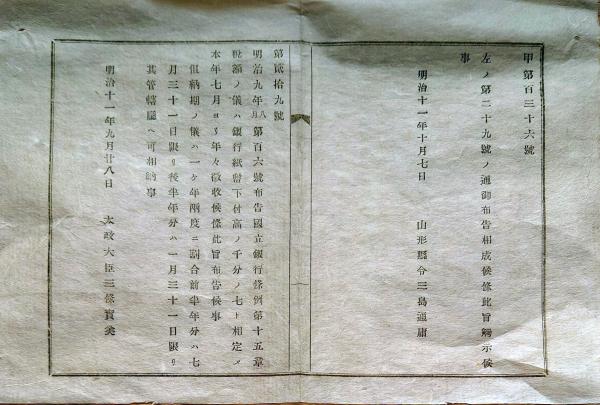 甲第百三十六號
左ノ第二十九號ノ通御布告相成候條此旨觸示候
事
明治十一年十月七日
山形縣令三島通庸
第貳拾九號
明治九年八月第百六號布告國立銀行條例第十五章
税額ノ儀ハ銀行紙幣下付高ノ千分ノ七ト相定メ
本年七月ヨリ年々徴收候條此旨布告候事
但納期ノ儀ハ一ケ年兩度ニ割合前半年分ハ七
月三十一日限リ後半年分ハ一月三十一日限リ
其管轄廳ヘ可相納事
明治十一年九月廿八日
太政大臣三條實美